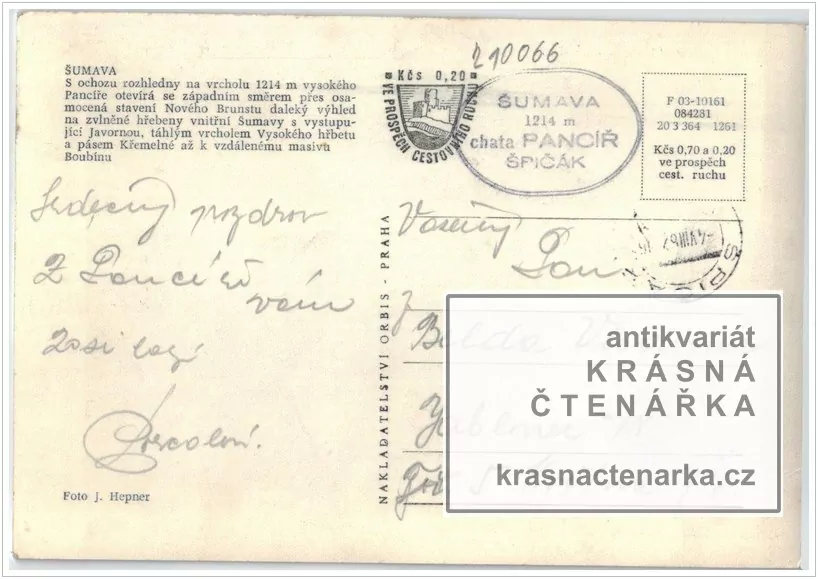 210066
ŠUMAVA
S ochozu rozhledny na vrcholu 1214 m vysokého
Pancíře otevírá se západním směrem přes osa-
mocená stavení Nového Brunstu daleký výhled
na zvlněné hřebeny vnitřní Šumavy s vystupu-
jící Javornou, táhlým vrcholem Vysokého hřbetu
a pásem Křemelné až k vzdálenému masivu
Boubínu
Kčs 0,20
VE PROSPĚCH CESTOVNÍHO RUCHU
ŠUMAVA
1214 m
chata PANCÍŘ
ŠPIČÁK
F 03-10161
084281
20 3 364 1261
Kčs 0,70 a 0,20
ve prospěch
cest. ruchu
Srdečný pozdrav
Z Pancíře
vám
Foto J. Hepner
NAKLADATELSTVÍ ORBIS - PRAHA
Vážený
Pan
antikvariát
KRÁSNÁ
ČTENÁŘKA
krasnactenarka.cz